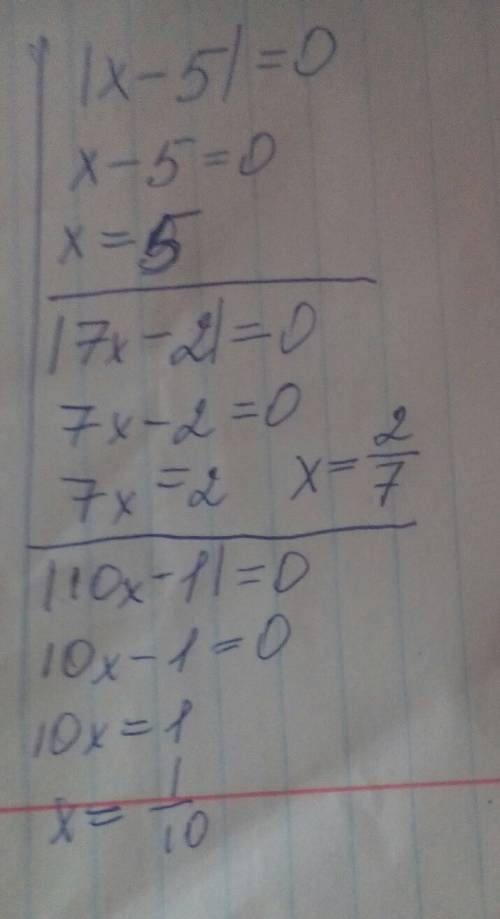 |x-5|=0
x-5=0
x=5
|7x-2|=0
7x-2=0
7x=2 x=2/7
|10x-1|=0
10x-1=0
10x=1
x=1/10